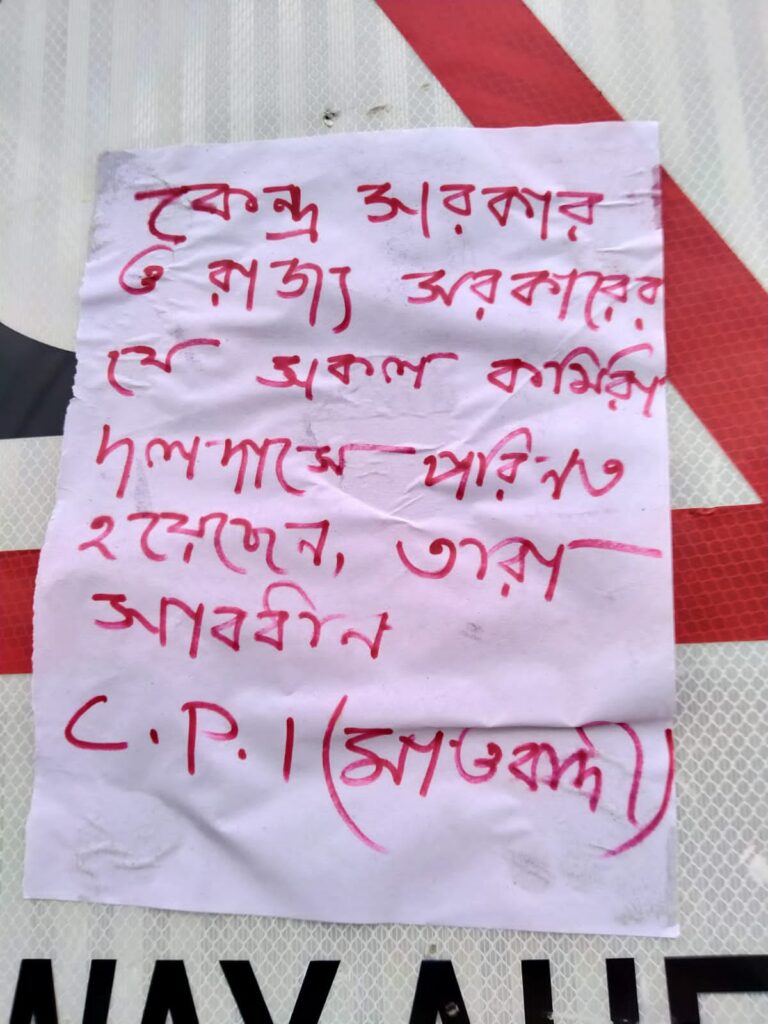 কেন্দ্র সারকার
ও রাজ্য সরকারের
যে সকল কর্মিরা
দলদাসে পরিনত
হয়েছেন, তারা
সাবধীন
C.P.I (মাওবাদী)
WAY AHE